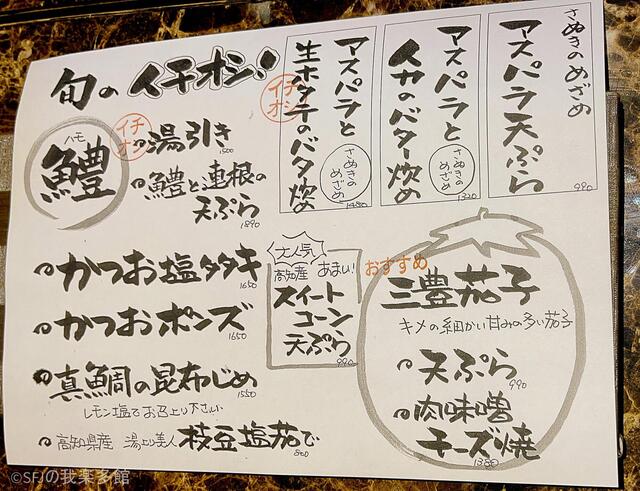 旬のイチオシ!
ハモ
鱧
イチオシ
湯引き
1500
鱧と連根の
天ぷら
1890
かつお塩タタキ
1650
かつおポンズ
1650
真鯛の昆布じめ
1550
レモン塩でお召上り下さい
高知県産 湯上り美人 枝豆塩茄で
800
さぬきのめざめ
アスパラ天ぷら
990
アスパラと
イカのバター炒め
さぬきの
めざめ
1320
アスパラと
生ホタテのバタ炒め
イチオシ
さぬきの
めざめ
大人気
高知産 あまい!
スイート
コーン
天ぷら
990
おすすめ
三豊茄子
キメの細かい甘みの多い茄子
天ぷら
990
肉味噌
チーズ焼
1380
©SFJの我楽多館